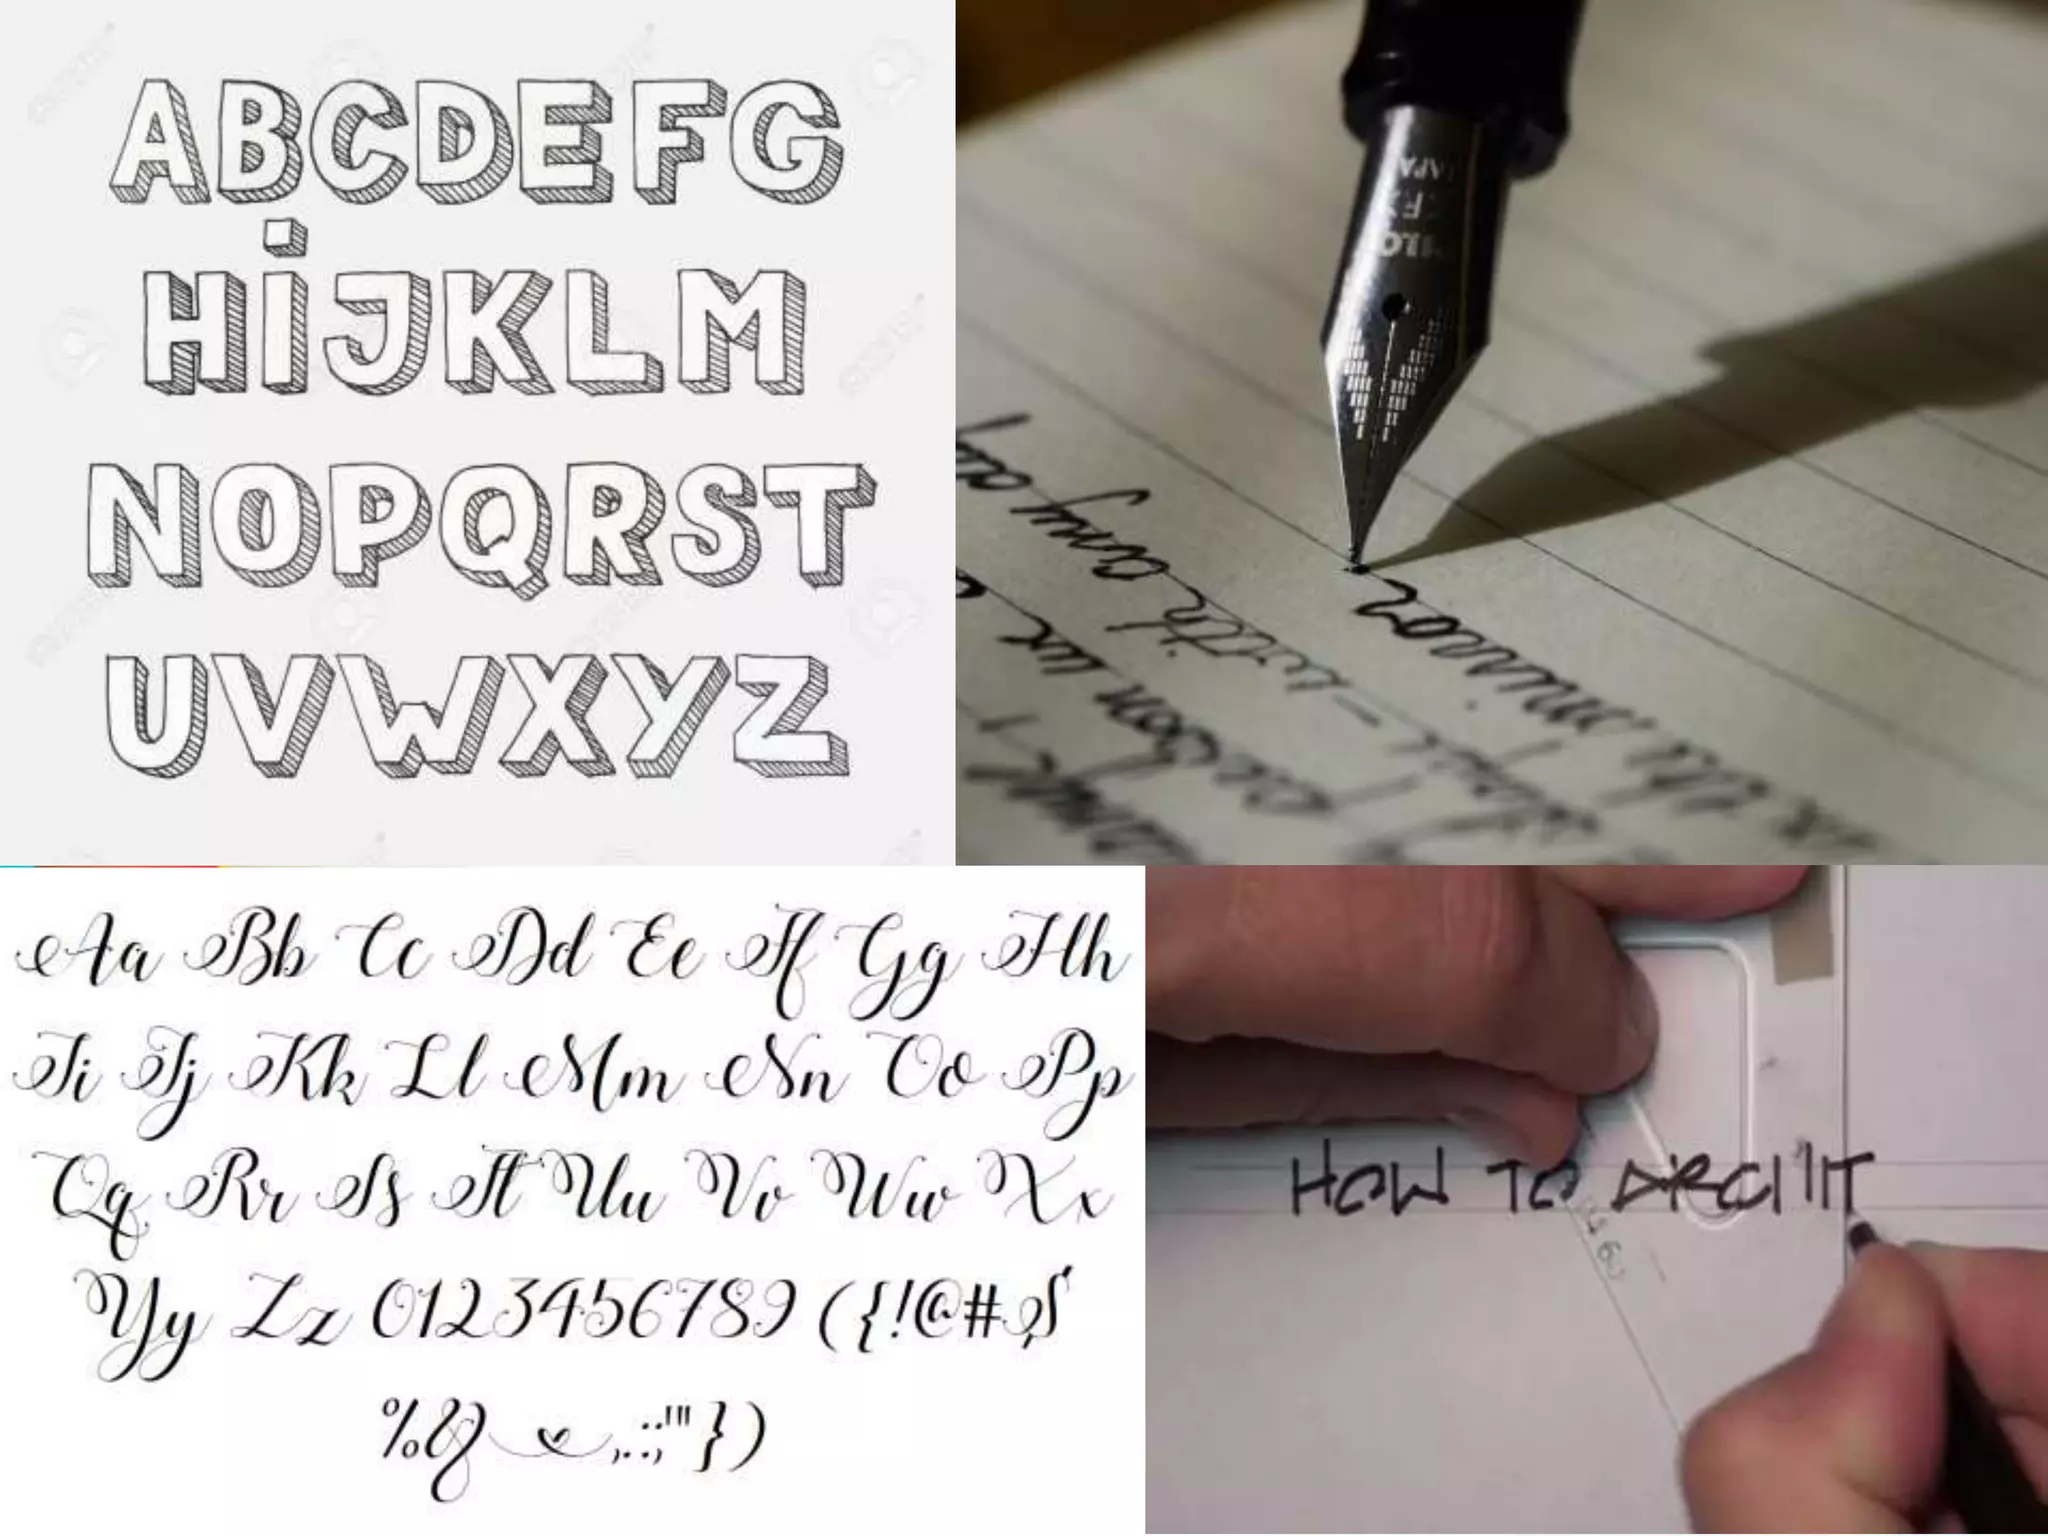 ABCDEFG
HiJKLM
NOPQRST
UVWXYZ
with any
person
mission
Aa Bb Cc Dd Ee Ff Gg Hh
Ii Jj Kk Ll Mm Nn Oo Pp
Qq Rr Ss Tt Uu Vv Ww Xx
Yy Zz 0123456789 ({!@#$
%& ,.:;'"})
HOW TO